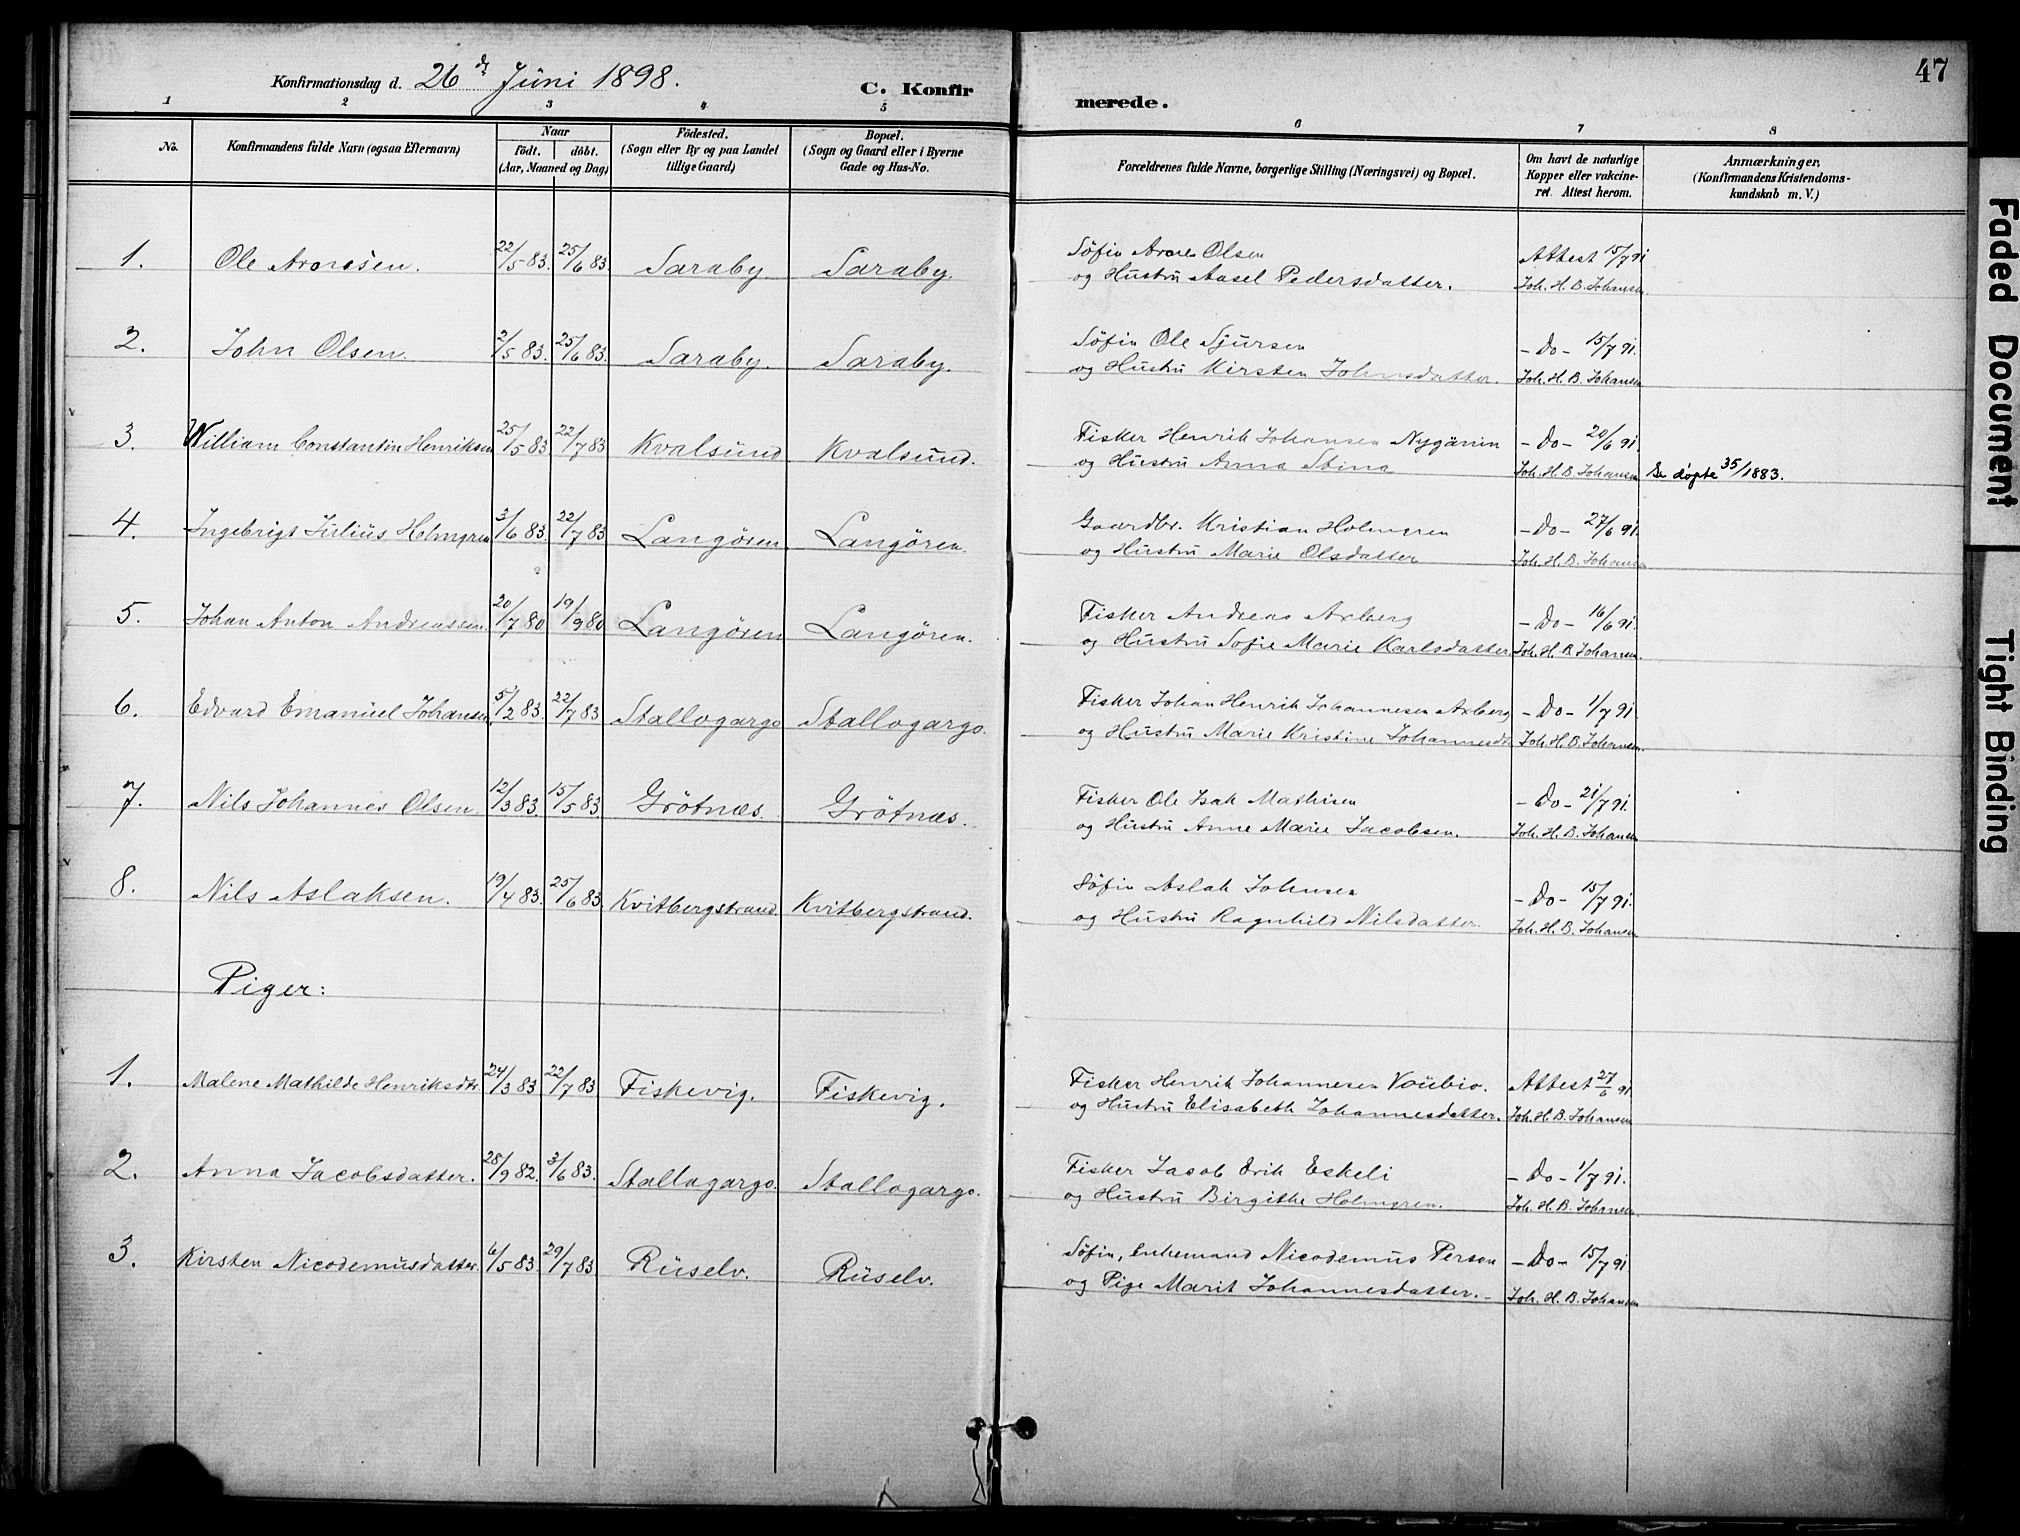 47
Konfirmationsdag d. 26de Juni 1898.
C. Konfirmerede.
1 2 3 4 5 6 7 8
No.
Konfirmandens fulde Navn (ogsaa Efternavn)
Naar
født. døbt.
(Aar, Maaned og Dag)
Fødested.
(Sogn eller By og paa Landet
tillige Gaard)
Bopæl.
(Sogn og Gaard eller i Byerne
Gade og Hus-No.
Forældrenes fulde Navne, borgerlige Stilling (Næringsvei) og Bopæl.
Om havt de naturlige
Kopper eller vakcine-
ret. Attest herom.
Anmærkninger.
(Konfirmandens Kristendoms-
kundskab m. V.)
1. Ole Arnesen. 22/5 83. 25/6 83. Saraby. Saraby. Söfin Arne Olsen Attest 15/7 91
og Hustru Aasel Pedersdatter. Joh. H. B. Johansen.
2. John Olsen. 2/5 83. 25/6 83. Saraby. Saraby. Söfin Ole Sjursen - Do - 15/7 91.
og Hustru Kirsten Johnsdatter. Joh. H. B. Johansen
3. William Constantin Henriksen 25/5 83. 22/7 83 Kvalsund Kvalsund. Fisker Henrik Johansen Nygänin - Do - 20/6 91.
og Hustru Anna Stina Joh. H. B. Johansen Se døpte 35/1883.
4. Ingebrigt Julius Holmgren 3/6 83. 22/7 83 Langören. Langören. Gaardbr. Kristian Holmgren - Do - 27/6 91.
og Hustru Marie Olsdatter Joh. H. B. Johansen
5. Johan Anton Andreassen. 20/7 80 19/9 80 Langören Langören. Fisker Andreas Axberg - Do - 16/6 91.
og Hustru Sofie Marie Karlsdatter. Joh. H. B. Johansen.
6. Edvard Emanuel Johansen 5/2 83. 22/7 83 Stallogargo Stallogargo. Fisker Johan Henrik Johannesen Axberg - Do - 1/7 91.
og Hustru Marie Kristine Johannesdt. Joh. H. B. Johansen.
7. Nils Johannes Olsen. 12/3 83. 15/5 83 Grötnæs. Grötnæs. Fisker Ole Isak Mathisen - Do - 21/7 91.
og Hustru Anne Marie Jacobsen. Joh. H. B. Johansen
8. Nils Aslaksen. 19/4 83. 25/6 83. Kvitbergstrand. Kvitbergstrand. Söfin Aslak Johnsen - Do - 15/7 91.
og Hustru Ragnhild Nilsdatter. Joh. H. B. Johansen
Piger:
1. Malene Mathilde Henriksdtr. 24/3 83 22/7 83 Fiskevig. Fiskevig. Fisker Henrik Johannesen Voübio. Attest 27/6 91
og Hustru Elisabeth Johannesdatter. Joh. H. B. Johansen
2. Anna Jacobsdatter. 28/9 82. 3/6 83. Stallogargo. Stallogargo. Fisker Jacob Erik Eskeli - Do - 1/7 91.
og Hustru Birgithe Holmgren. Joh. H. B. Johansen.
3. Kirsten Nicodemusdatter. 6/5 83. 29/7 83. Rüselv. Rüselv. Söfin, Enkemand Nicodemus Persen - Do - 15/7 91
og Pige Marit Johannesdatter. - Joh. H. B. Johansen
Faded Document
Tight Binding